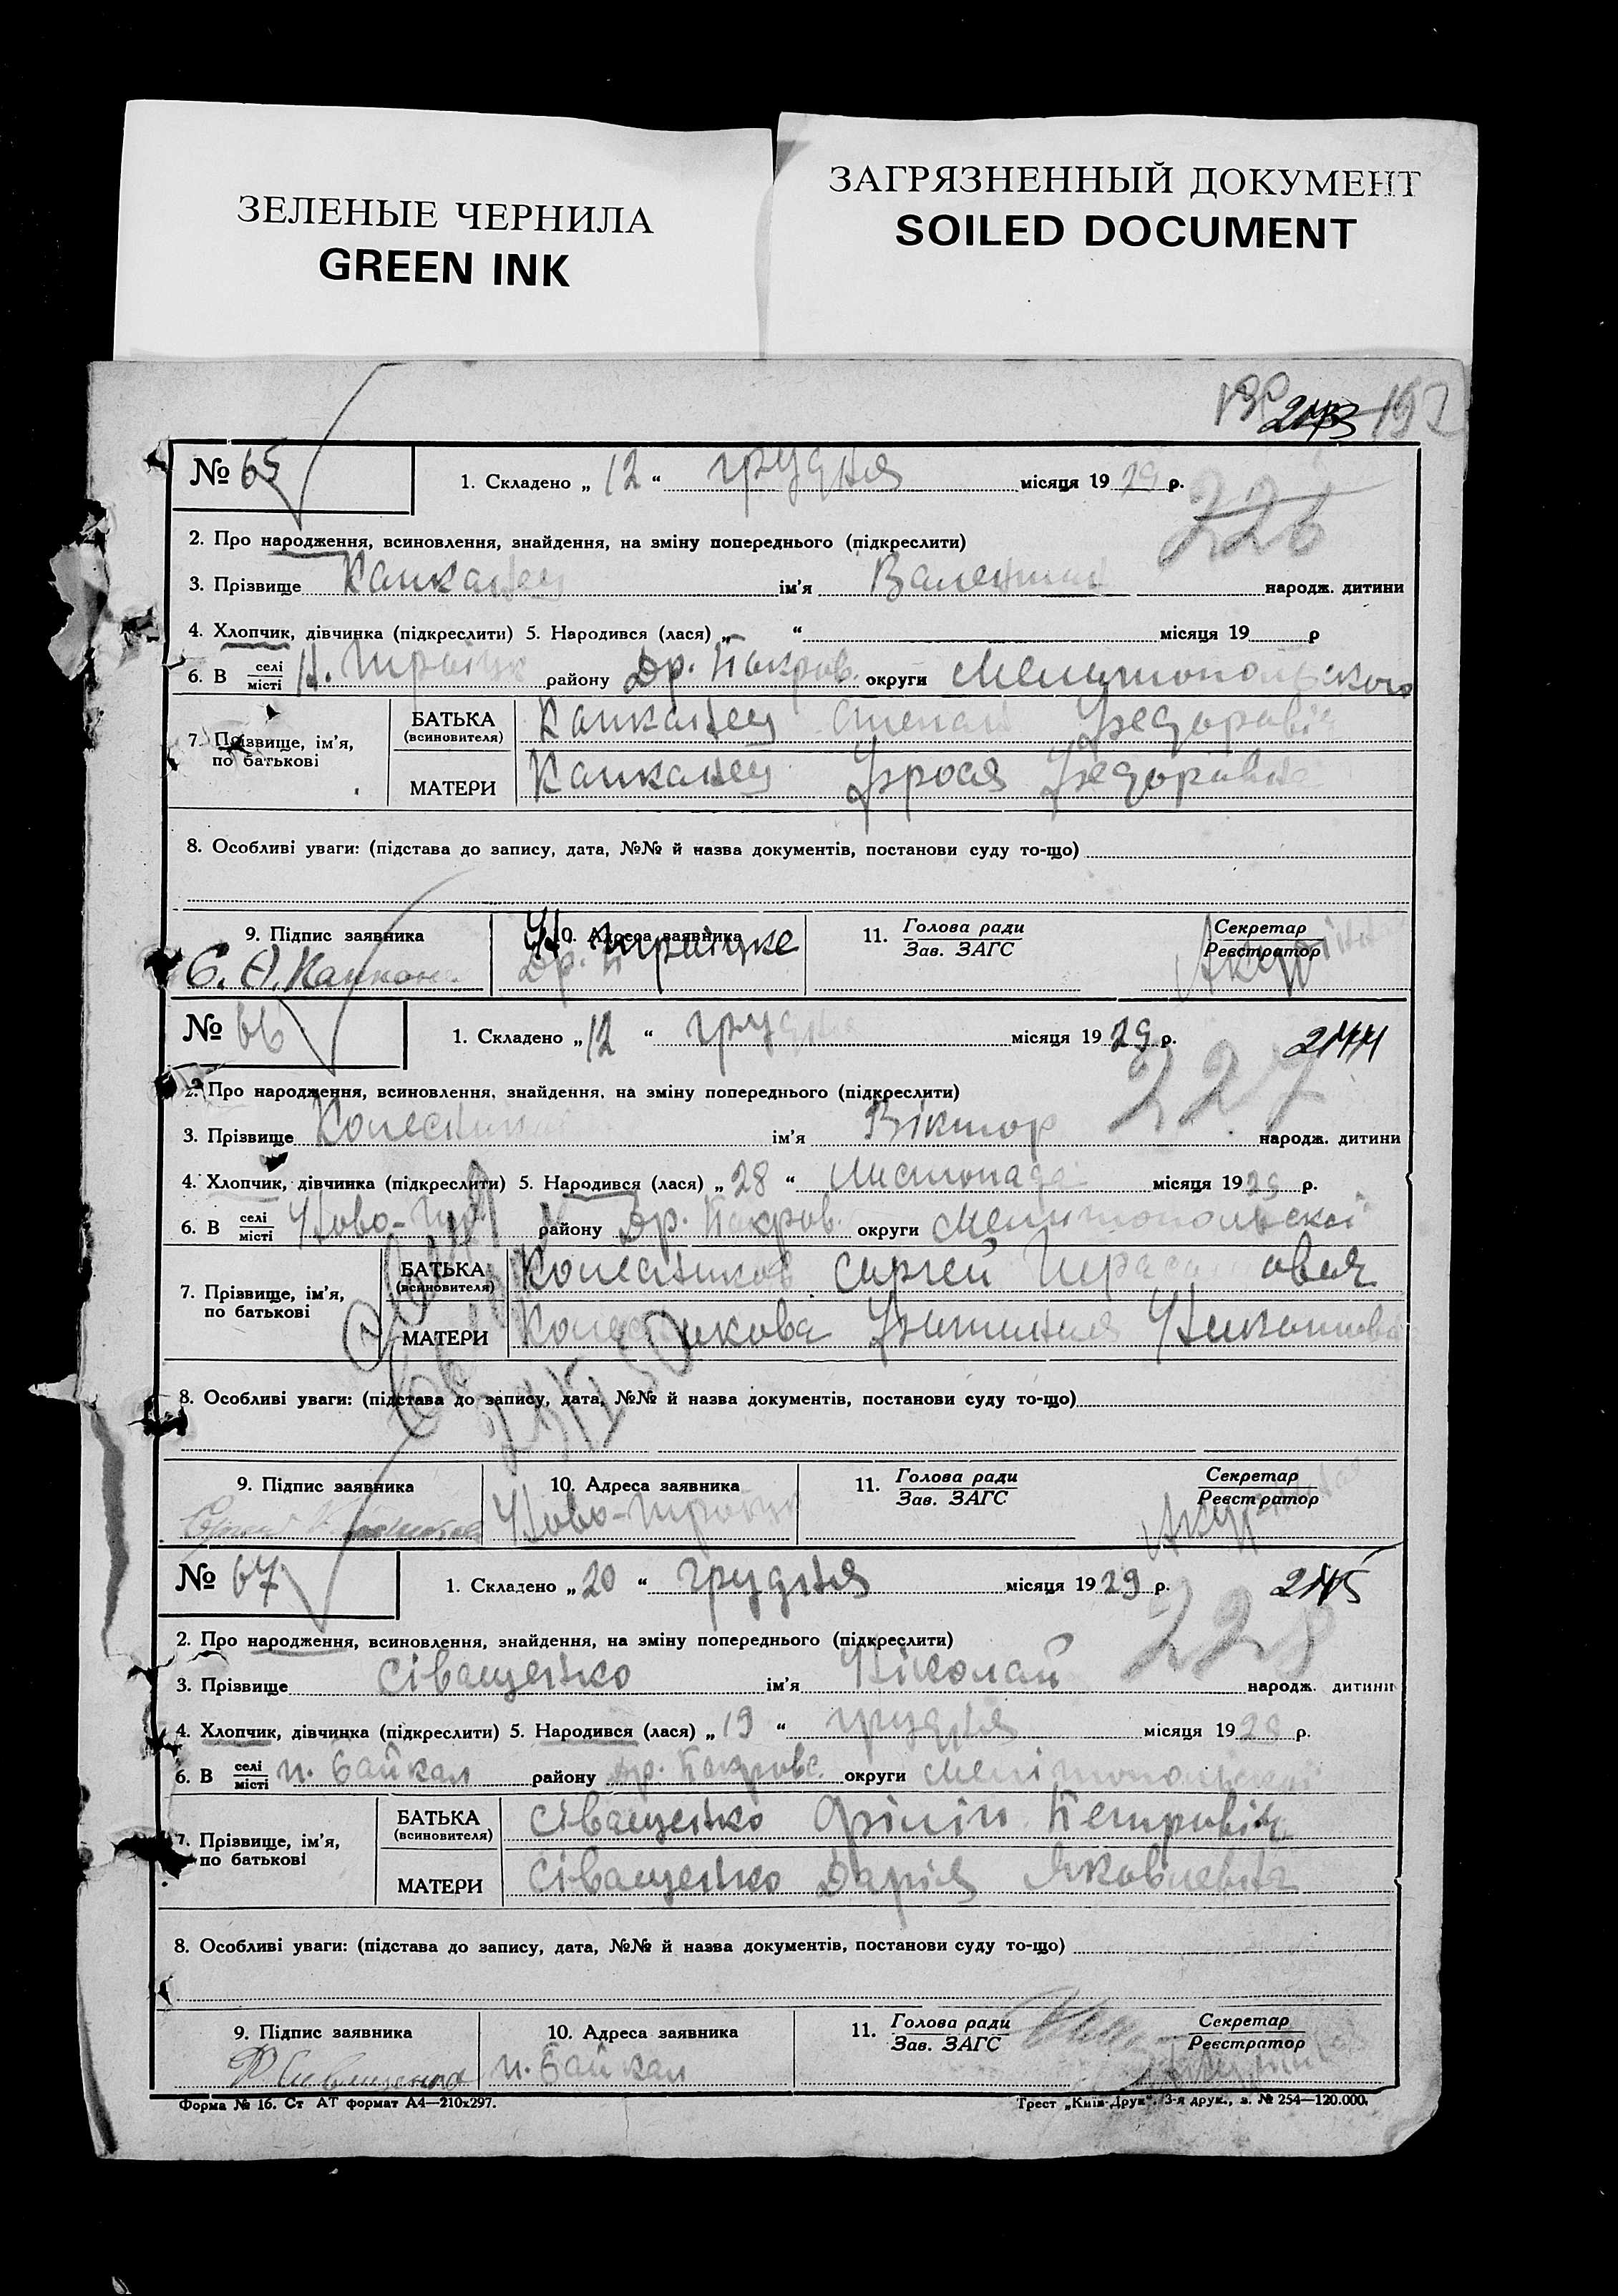 ЗЕЛЕНЫЕ ЧЕРНИЛА
GREEN INK
ЗАГРЯЗНЕННЫЙ ДОКУМЕНТ
SOILED DOCUMENT
190 243 192
№ 65 1. Складено „ 12 “ грудня місяця 19 29 р.
226
2. Про народження, всиновлення, знайдення, на зміну попереднього (підкреслити)
3. Прізвище Капканец ім'я Валентин народж. дитини
4. Хлопчик, дівчинка (підкреслити) 5. Народився (лася) „ “ місяця 19 р
6. В селі місті Н. Троіцк району Др. Покров. округи Мелитопольского
7. Прізвище, ім'я, по батькові
БАТЬКА (всиновителя) Капканец Степан Федоровіч
МАТЕРИ Капканец Фрося Федоровна
8. Особливі уваги: (підстава до запису, дата, №№ й назва документів, постанови суду то-що)
9. Підпис заявника 10. Адреса заявника 11. Голова ради Зав. ЗАГС Секретар Реєстратор
Н. Троіцке
№ 66 1. Складено „ 12 “ грудня місяця 19 29 р. 244
227
2. Про народження, всиновлення, знайдення, на зміну попереднього (підкреслити)
3. Прізвище Колесников ім'я Віктор народж. дитини
4. Хлопчик, дівчинка (підкреслити) 5. Народився (лася) „ 28 “ Листопада місяця 19 29 р.
6. В селі місті Ново-Тр району Др. Покров. округи Мелитопольскоі
7. Прізвище, ім'я, по батькові
БАТЬКА (всиновителя) Колесников Сергей
МАТЕРИ Колесникова
8. Особливі уваги: (підстава до запису, дата, №№ й назва документів, постанови суду то-що)
9. Підпис заявника 10. Адреса заявника 11. Голова ради Зав. ЗАГС Секретар Реєстратор
Ново-Троіцк
№ 67 1. Складено „ 20 “ грудня місяця 19 29 р. 245
228
2. Про народження, всиновлення, знайдення, на зміну попереднього (підкреслити)
3. Прізвище Сіващенко ім'я Ніколай народж. дитини
4. Хлопчик, дівчинка (підкреслити) 5. Народився (лася) „ 19 “ грудня місяця 19 29 р.
6. В селі місті п. Байкал району Др. Покровс. округи Мелітопольскоі
7. Прізвище, ім'я, по батькові
БАТЬКА (всиновителя) Сіващенко Філіп Петровіч
МАТЕРИ Сіващенко Дарія Яковлевна
8. Особливі уваги: (підстава до запису, дата, №№ й назва документів, постанови суду то-що)
9. Підпис заявника 10. Адреса заявника 11. Голова ради Зав. ЗАГС Секретар Реєстратор
п. Байкал
Форма № 16. Ст АТ формат А4—210х297. Трест „Київ-Друк“. 3-я друк., з. № 254—120.000.